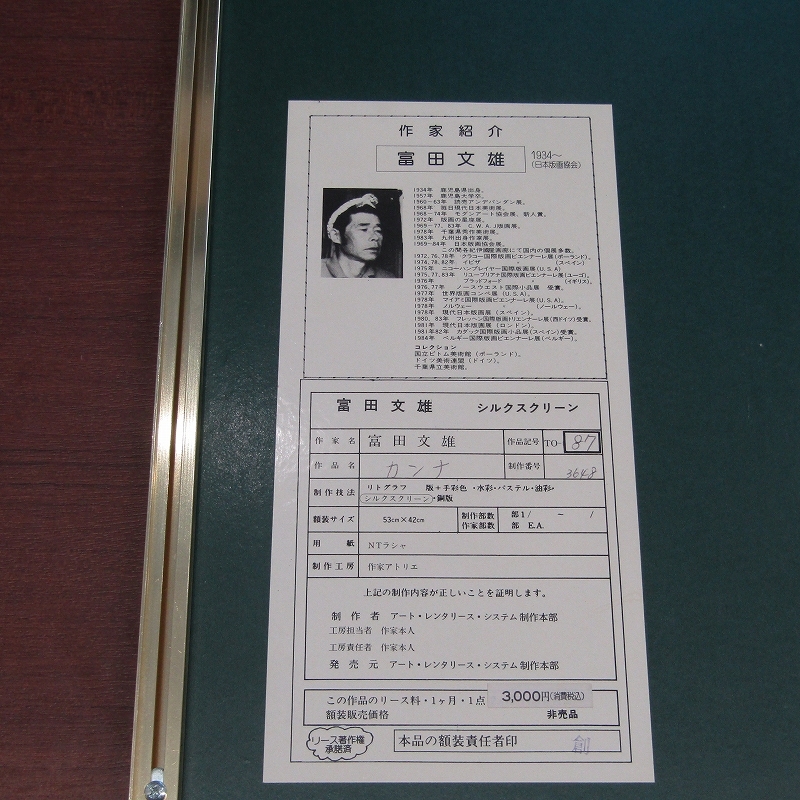 作家紹介
富田文雄 1934～(日本版画協会)
1934年 鹿児島県出身。
1957年 鹿児島大学卒。
1960~63年 読売アンデパンダン展。
1968年 毎日現代日本美術展。
1968~74年 モダンアート協会展、新人賞。
1972年 版画の星座展。
1969~77, 83年 C.W.A.J版画展。
1978年 千葉県秀作美術展。
1983年 九州出身作家展。
1969~84年 日本版画協会展。
この間各紀伊國屋画廊にて国内の個展多数。
1972,76,78年 クラコー国際版画ビエンナーレ展(ポーランド)。
1974,78,82年 イビザ 〃 (スペイン)
1975年 ニコーハンブレイヤー国際版画展(U.S.A)
1975,77,83年 リユーブリアナ国際版画ビエンナーレ展(ユーゴ)。
1976年 ブラッドフォード 〃 (イギリス)。
1976,77年 ノースウエスト国際小品展 受賞。
1977年 世界版画コンペ展(U.S.A)。
1978年 マイアミ国際版画ビエンナーレ展(U.S.A)。
1978年 ノルウェー 〃 (ノールウェー)。
1978年 現代日本版画展(スペイン)。
1980, 83年 フレッヘン国際版画トリエンナーレ展(西ドイツ)受賞。
1981年 現代日本版画展(ロンドン)。
1981年82年 カダック国際版画小品展(スペイン)受賞。
1984年 ベルギー国際版画ビエンナーレ展(ベルギー)。
コレクション
国立ビトム美術館(ポーランド)。
ドイツ美術連盟(ドイツ)。
千葉県立美術館。
富田文雄 シルクスクリーン
作家名 富田文雄 作品記号 TO- 87
作品名 カンナ 制作番号 3648
制作技法 リトグラフ 版+手彩色・水彩・パステル・油彩・
シルクスクリーン・銅版
額装サイズ 53cm×42cm 制作部数 部1/ － /
作家部数 部 E.A.
用紙 NTラシャ
制作工房 作家アトリエ
上記の制作内容が正しいことを証明します。
制作者 アート・レンタリース・システム制作本部
工房担当者 作家本人
工房責任者 作家本人
発売元 アート・レンタリース・システム制作本部
この作品のリース料・1ヶ月・1点 3,000円(消費税込)
額装販売価格 非売品
リース著作権
承諾済
本品の額装責任者印 創